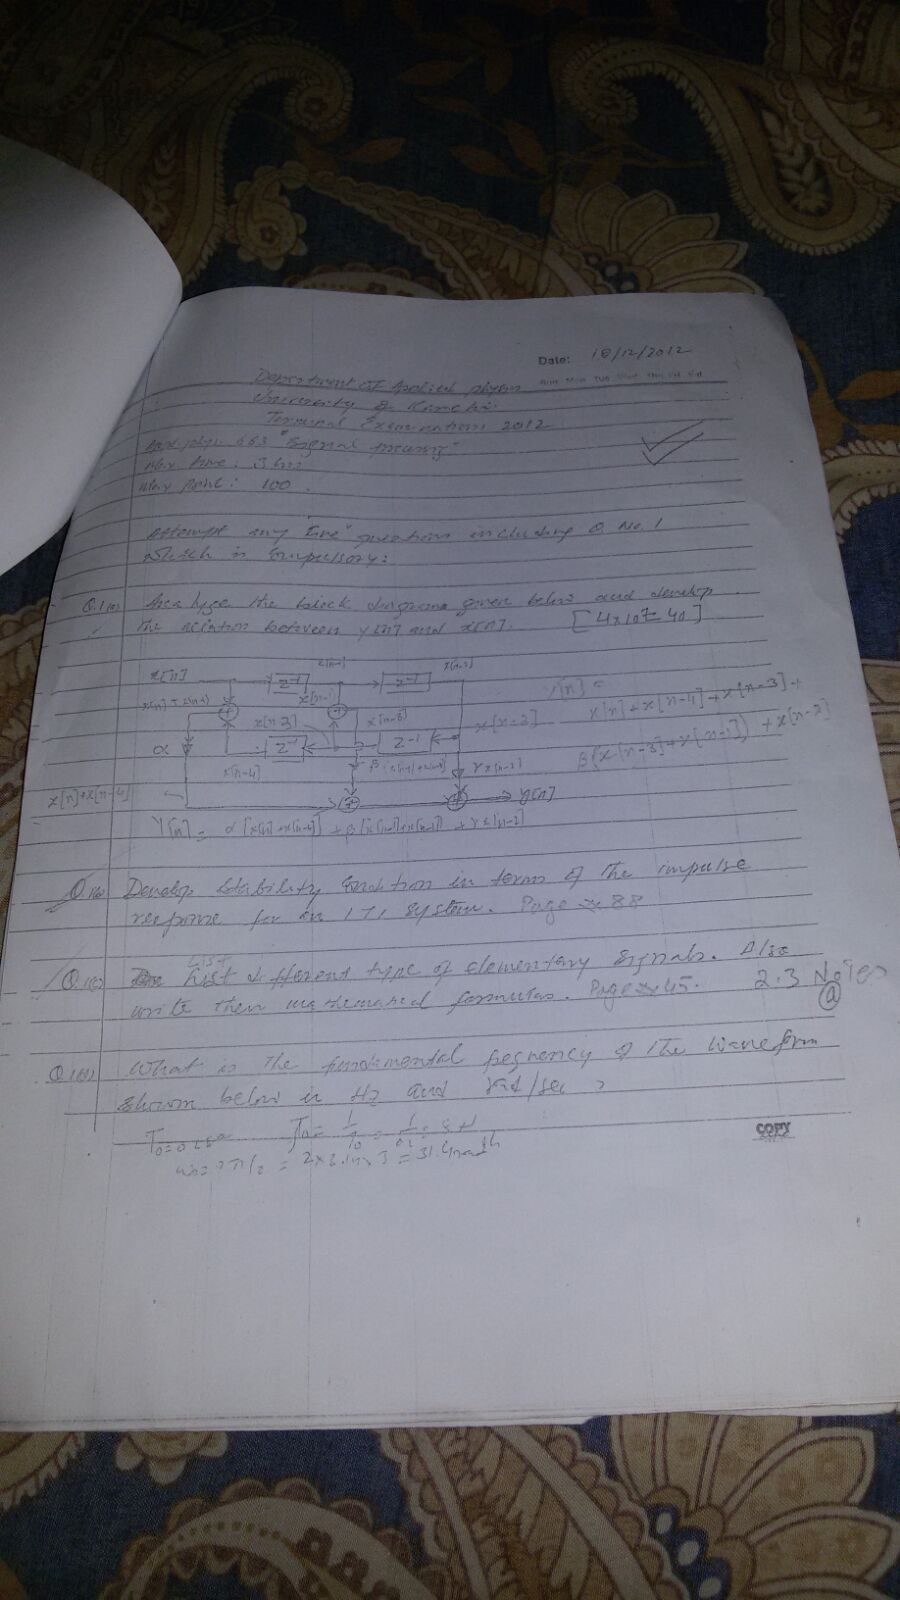 Date: 18/12/2012
Department of Applied physics
University of Karachi
Terminal Examinations 2012
663 "Signal
Max time: 3 hrs
Max point: 100
Attempt any "five" questions including Q No. 1
which is compulsory:
Q.1(a) Analyze the block diagrams given below and develop
the relation between y[n] and x[n]. [4x10= 40]
x[n] z⁻¹ x[n-1] z⁻¹ x[n-2]
x[n] + x[n-4] + x[n-1] +
α x[n-3] z⁻¹ z⁻¹ x[n-3]
x[n-4] β γx[n-2]
x[n]+x[n-4] + + y[n]
y[n] =
x[n]+x[n-4]+x[n-3]+
β(x[n-3]+x[n-1]) + x[n-2]
Y[n] = α[x[n]+x[n-4]] + + γx[n-2]
Q 1(b) Develop stability condition in terms of the impulse
response for an LTI system. Page 88
List
Q.1(c) List different type of elementary signals. Also
write them mathematical formulas. Page 45. 2.3 Notes
a
Q 1(d) What is the fundamental feqnency of the waveform
shown below in Hz and rad/sec ?
COPY